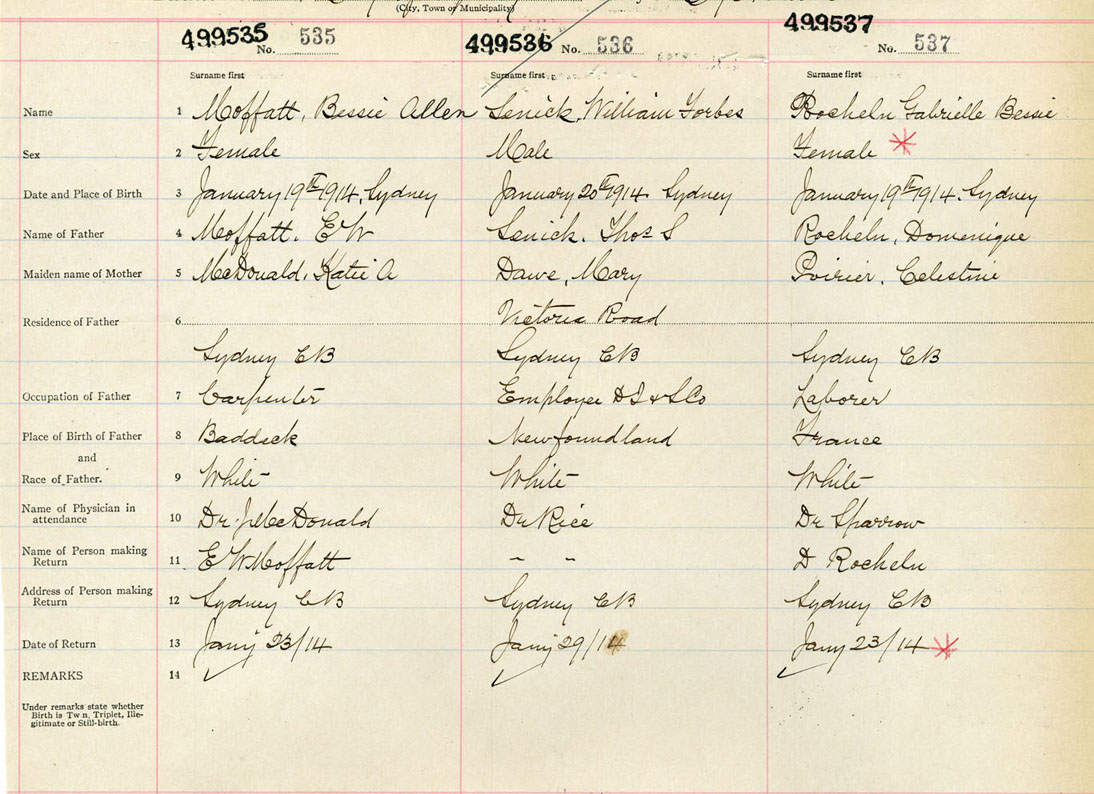 (City, Town or Municipality)
499535 No. 535 499536 No. 536 499537 No. 537
Surname first Surname first Surname first
Name 1 Moffatt, Bessie Allen Senick, William Forbes Rocheln Gabrielle Bessie
Sex 2 Female Male Female
Date and Place of Birth 3 January 19th 1914, Sydney January 20th 1914 Sydney January 19th 1914, Sydney
Name of Father 4 Moffatt, E W Senick, Thos S Rocheln, Domenique
Maiden name of Mother 5 McDonald, Katie A Dawe, Mary Poirier, Celestine
Victoria Road
Residence of Father 6
Sydney CB Sydney CB Sydney CB
Occupation of Father 7 Carpenter Employee D I & S Co Laborer
Place of Birth of Father 8 Baddeck Newfoundland France
and
Race of Father. 9 White White White
Name of Physician in
attendance 10 Dr. J McDonald Dr Rice Dr Sparrow
Name of Person making
Return 11 E W Moffatt " " D Rocheln
Address of Person making
Return 12 Sydney CB Sydney CB Sydney CB
Date of Return 13 Jany 23/14 Jany 29/14 Jany 23/14
REMARKS 14
Under remarks state whether
Birth is Twn, Triplet, Ille-
gitimate or Still-birth.